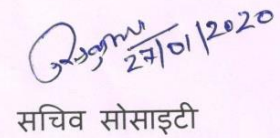 27/01/2020
सचिव सोसाइटी